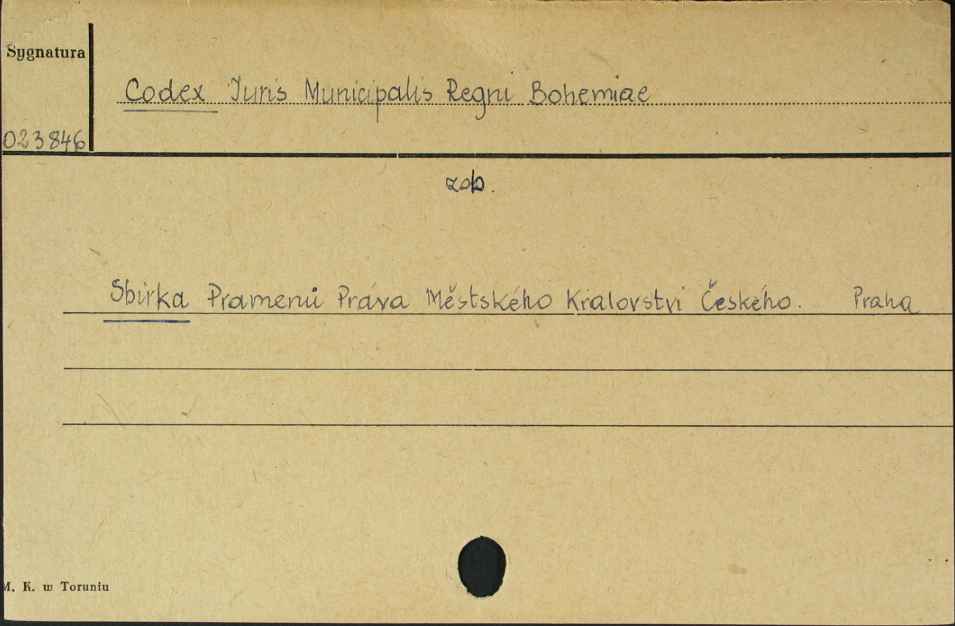 Sygnatura
Codex Iuris Municipalis Regni Bohemiae
023846
zob.
Sbirka Pramenů Práva Městského Kralovstvi Českého. Praha
M. K. w Toruniu